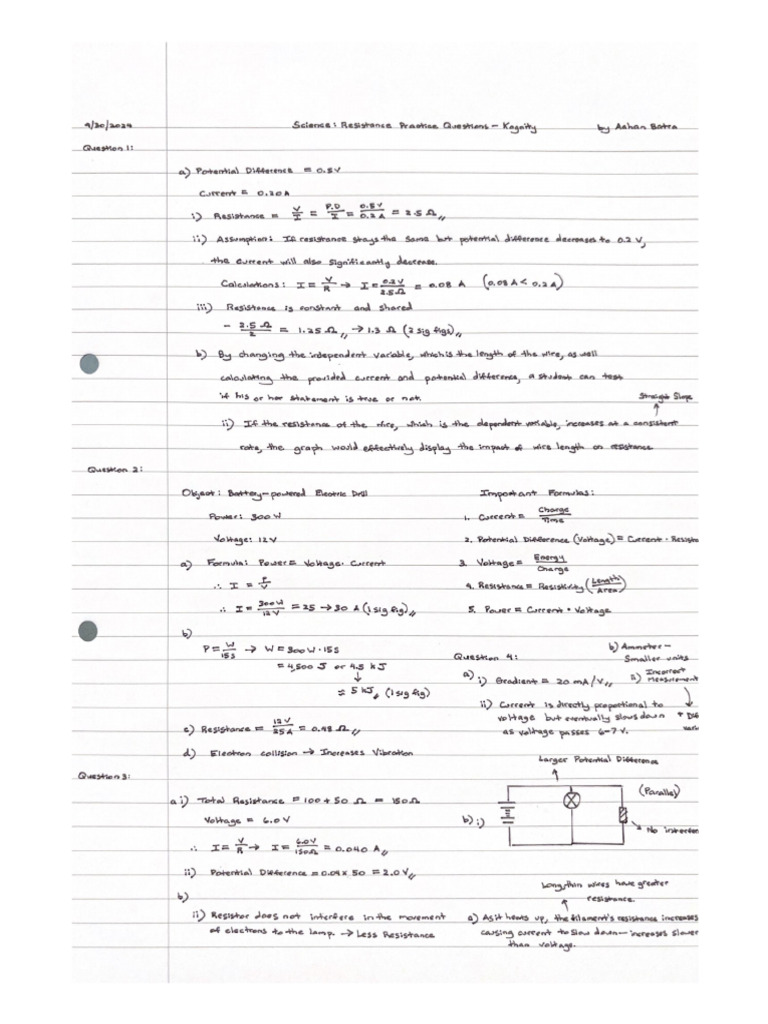 9/30/2024 Science: Resistance Practice Questions - Kognity by Aahan Batra
Question 1:
a) Potential Difference = 0.5V
Current = 0.20A
i) Resistance = V/I = P.D/I = 0.5V/0.2A = 2.5 Ω //
ii) Assumption: If resistance stays the same but potential difference decreases to 0.2 V,
the current will also significantly decrease.
Calculations: I = V/R → I = 0.2V/2.5Ω = 0.08 A (0.08 A < 0.2A)
iii) Resistance is constant and shared
- 2.5 Ω/2 = 1.25 Ω // → 1.3 Ω (2 sig figs) //
b) By changing the independent variable, which is the length of the wire, as well
calculating the provided current and potential difference, a student can test
if his or her statement is true or not.
Straight Slope
↑
ii) If the resistance of the wire, which is the dependent variable, increases at a consistent
rate, the graph would effectively display the impact of wire length on resistance
Question 2:
Object: Battery-powered Electric Drill
Power: 300W
Voltage: 12V
a) Formula: Power = Voltage · Current
∴ I = P/V
∴ I = 300W/12V = 25 → 30 A (1 sig fig) //
b)
P = W/15s → W = 300W · 15s
= 4,500 J or 4.5 kJ
↓
≈ 5 kJ // (1 sig fig)
c) Resistance = 12V/25A = 0.48 Ω //
d) Electron collision → Increases Vibration
Important Formulas:
1. Current = Charge/Time
2. Potential Difference (Voltage) = Current · Resista
3. Voltage = Energy/Charge
4. Resistance = Resistivity (Length/Area)
5. Power = Current · Voltage
Question 3:
a i) Total Resistance = 100 + 50 Ω = 150Ω
Voltage = 6.0V
∴ I = V/R → I = 6.0V/150Ω = 0.040 A //
ii) Potential Difference = 0.04 x 50 = 2.0V //
b)
ii) Resistor does not interfere in the movement
of electrons to the lamp. → Less Resistance
Question 4:
a)
i) Gradient = 20 mA/V //
ii) Current is directly proportional to
voltage but eventually slows down
as voltage passes 6-7 V.
b) Ammeter -
Smaller units
ii) Incorrect
Measurement
↓
Larger Potential Difference
↑
b) i)
(Parallel)
→ No
Long, thin wires have greater
resistance.
↑
a) As it heats up, the filament's resistance increases
causing current to slow down - increases slower
than voltage.